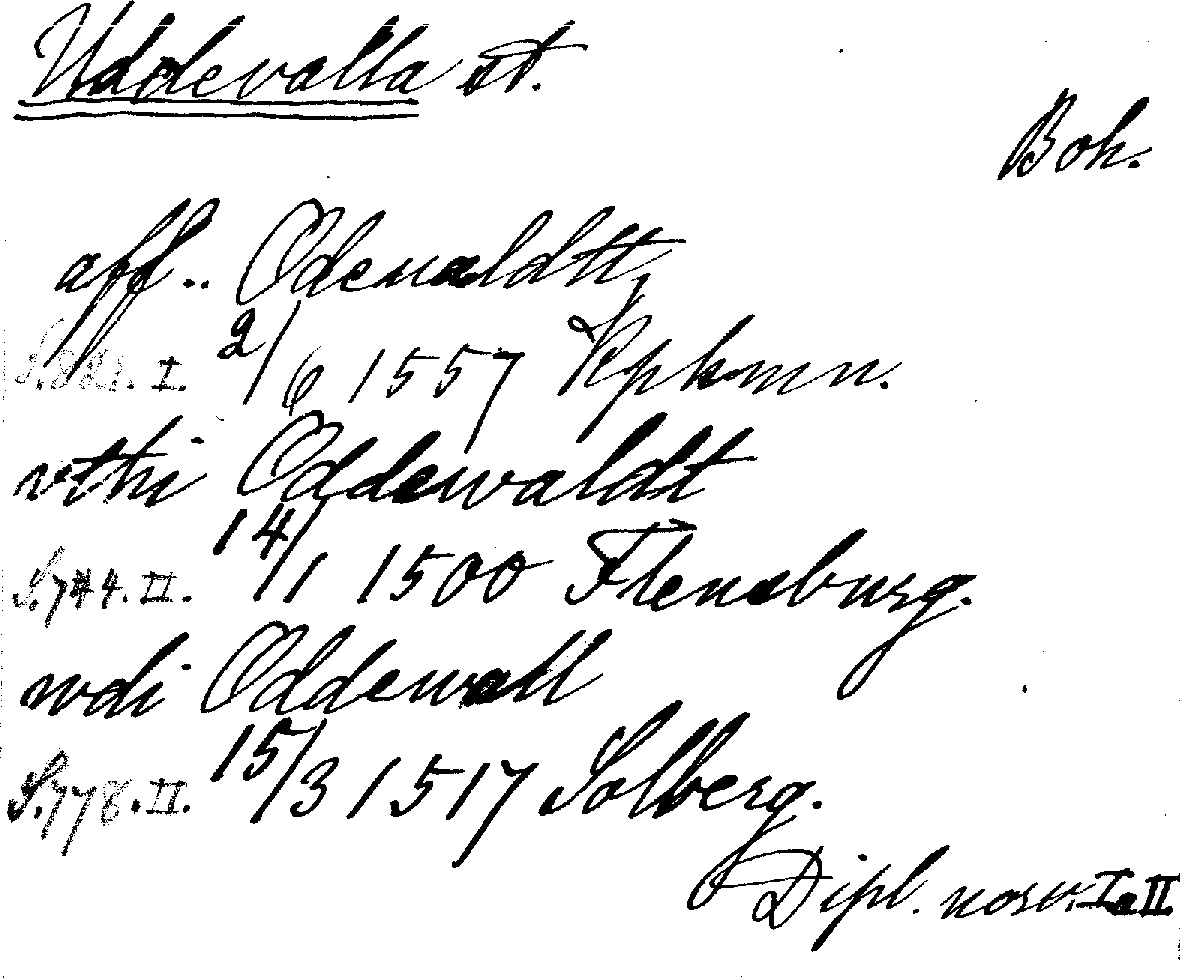 Uddevalla st.
Boh.
aff.. Odewaldtt,
I. 2/6 1557 Kphmn.
vthi Oddewaldt
S. 744. II. 14/1 1500 Flensburg.
wdi Oddewall
S. 778. II. 15/3 1517 Solberg.
Dipl. norv. I a II